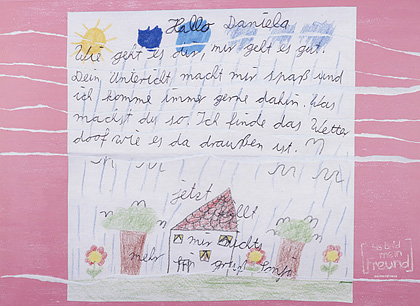 Hallo Daniela
Wie geht es dir, mir geht es gut.
Dein Unterricht macht mir spaß und
ich komme immer gerne dahin. Was
machst du so. Ich finde das Wetter
doof wie es da draußen ist.
jetzt
fällt
mir nichts
mehr ein